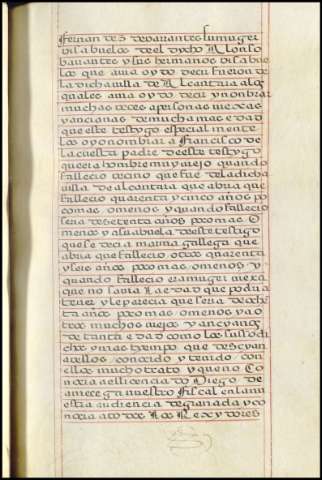 fernandes de barantes su muger
bisabuelos de el dycho Alonso
barantes y sus hermanos bisabue
los que avia oydo decir fueron de
la dicha villa de Alcantara a los
quales avia oydo decir y nonbrar
muchas veces a personas viexas
y ancianas de mucha mas edad
que este testygo especialmente
los oyo nonbrar a Francisco de
la cuesta padre de este testygo
que era hombre muy viejo quando
fallecio vecino que fue de la dicha
villa de alcantara que abra que
fallecio quarenta y cinco años po
co mas o menos y quando fallecio
seria de setenta años poco mas o
menos y a su abuela de este testigo
que se decia marina gallega que
abra que fallecio otros quarenta
y seis años poco mas o menos y
quando fallecio era muger viexa
que no savia la edad que podia
tener y le perecia que seria de oche
ta años poco mas o menos y a o
tros muchos viejos y ancyanos
de tanta edad como los susodi
chos y mas tiempo que descyan
avellos conocido y tenido con
ellos mucho trato y que no co
nocia a el licencia do Diego de
amecega nuestro fiscal en la nu
estra audiencia de granada y co
nocia a todos los Rexydores